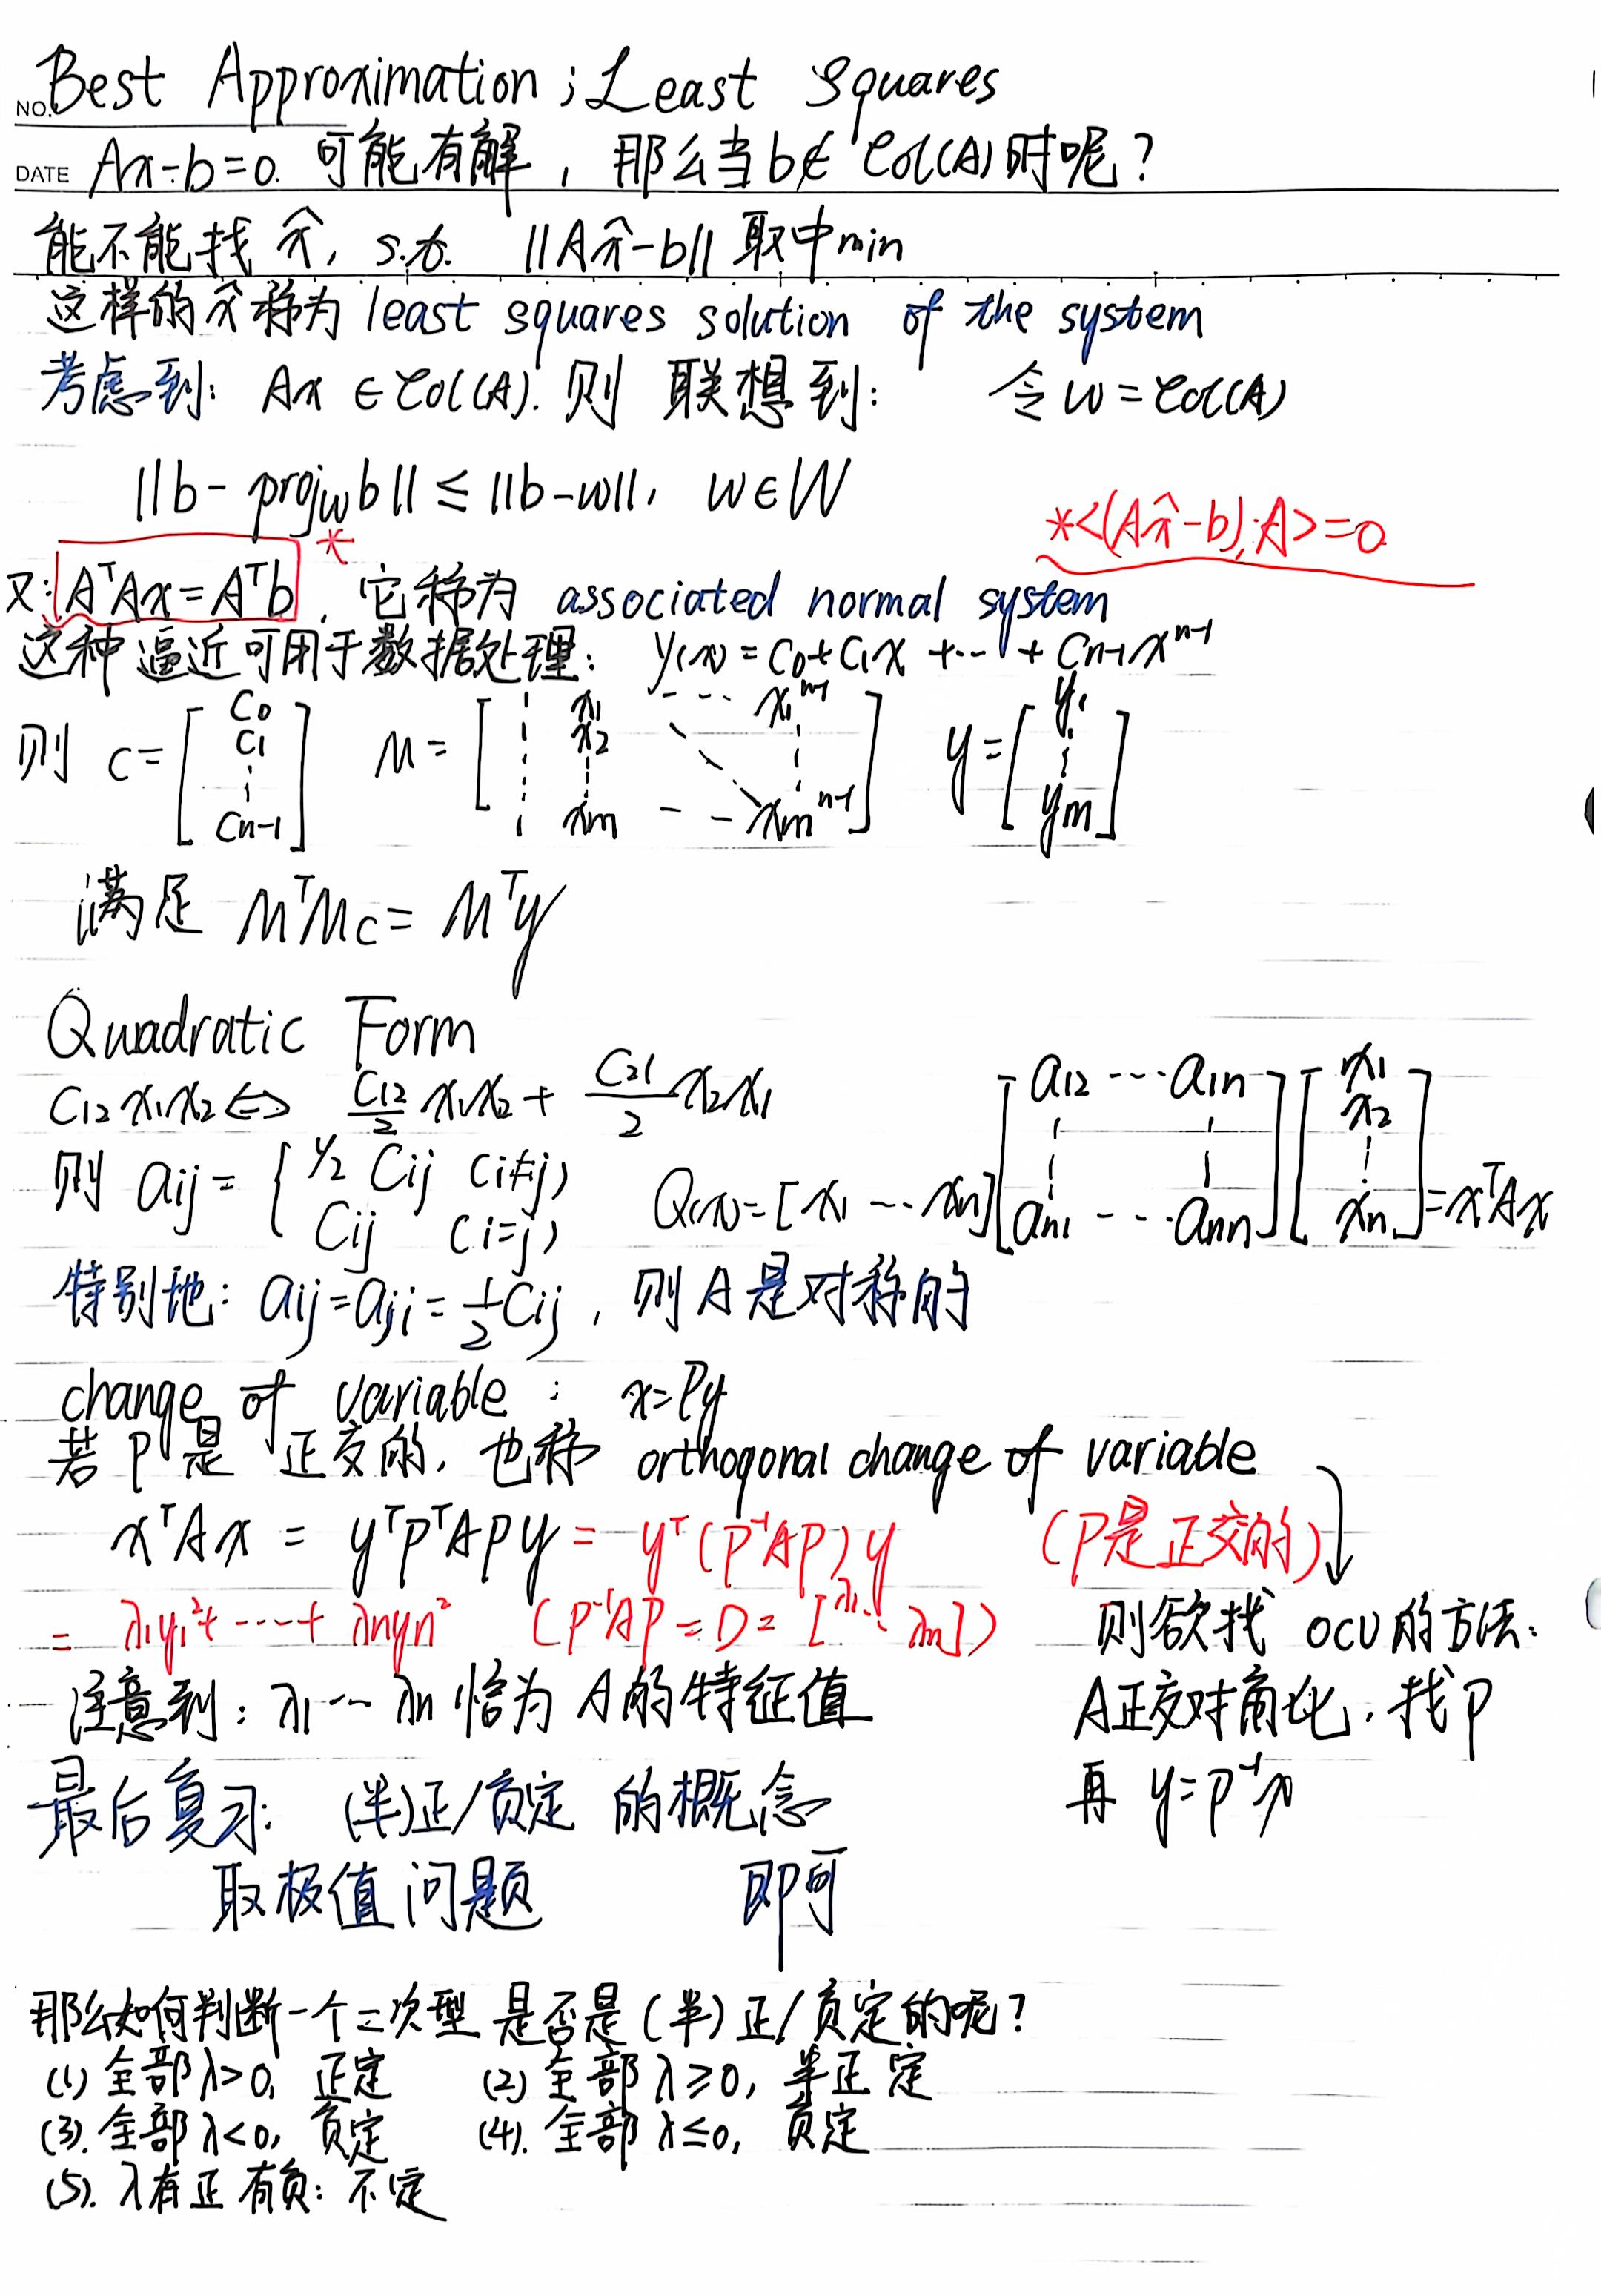 Best Approximation ; Least Squares
NO.
DATE Ax-b=0. 可能有解，那么当b∉Col(A)时呢？
能不能找 x̂, s.t. ||Ax̂-b|| 取中min
这样的x̂称为 least squares solution of the system
考虑到: Ax∈Col(A). 则 联想到: 令W=Col(A)
||b-proj_W b|| ≤ ||b-w||, w∈W
*<(Ax̂-b), A>=0
又: AᵀAx=Aᵀb * , 它称为 associated normal system
这种逼近可用于数据处理: y(x)=C₀+C₁x+…+Cₙ₋₁xⁿ⁻¹
则 c=[C₀ C₁ ⋮ Cn-1] M=[1 x₁ --- x₁ⁿ⁻¹ ⋮ x₂ ⋮ 1 xm -- xmⁿ⁻¹] y=[y₁ ⋮ ym]
满足 MᵀMc=Mᵀy
Quadratic Form
C₁₂x₁x₂⇔ C₁₂/2 x₁x₂ + C₂₁/2 x₂x₁
则 aij={ 1/2 Cij (i≠j) Cij (i=j) Q(x)=[x₁…xn][a₁₂…a₁n ⋮ ⋮ an₁…ann][x₁ x₂ ⋮ xn]=xᵀAx
特别地: aij=aji=1/2Cij, 则A是对称的
change of variable: x=Py
若P是正交的, 也称 orthogonal change of variable
xᵀAx = yᵀPᵀAPy = yᵀ(P⁻¹AP)y (P是正交的)
= λ₁y₁²+……+λnyn² (P⁻¹AP=D=[λ₁ ⋱ λn])
则欲找 OCV的方法:
注意到: λ₁…λn恰为A的特征值
A正交对角化, 找P
再 y=P⁻¹x
最后复习: (半)正/负定 的概念
取极值问题 即可
那么如何判断一个二次型是否是(半)正/负定的呢?
(1) 全部λ>0, 正定 (2) 全部λ≥0, 半正定
(3). 全部λ<0, 负定 (4). 全部λ≤0, 负定
(5). λ有正有负: 不定